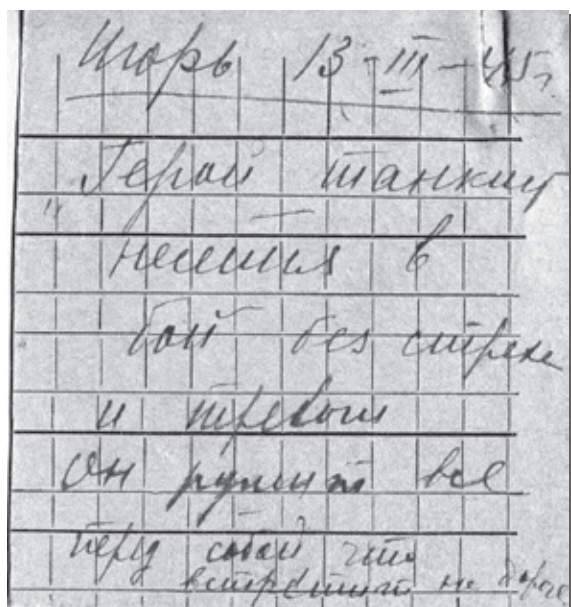 Игорь 13-III-45г.
"Герой танкист
несется в
бой без страха
и тревоги
он рушит все
перед собой что
встретит на дороге